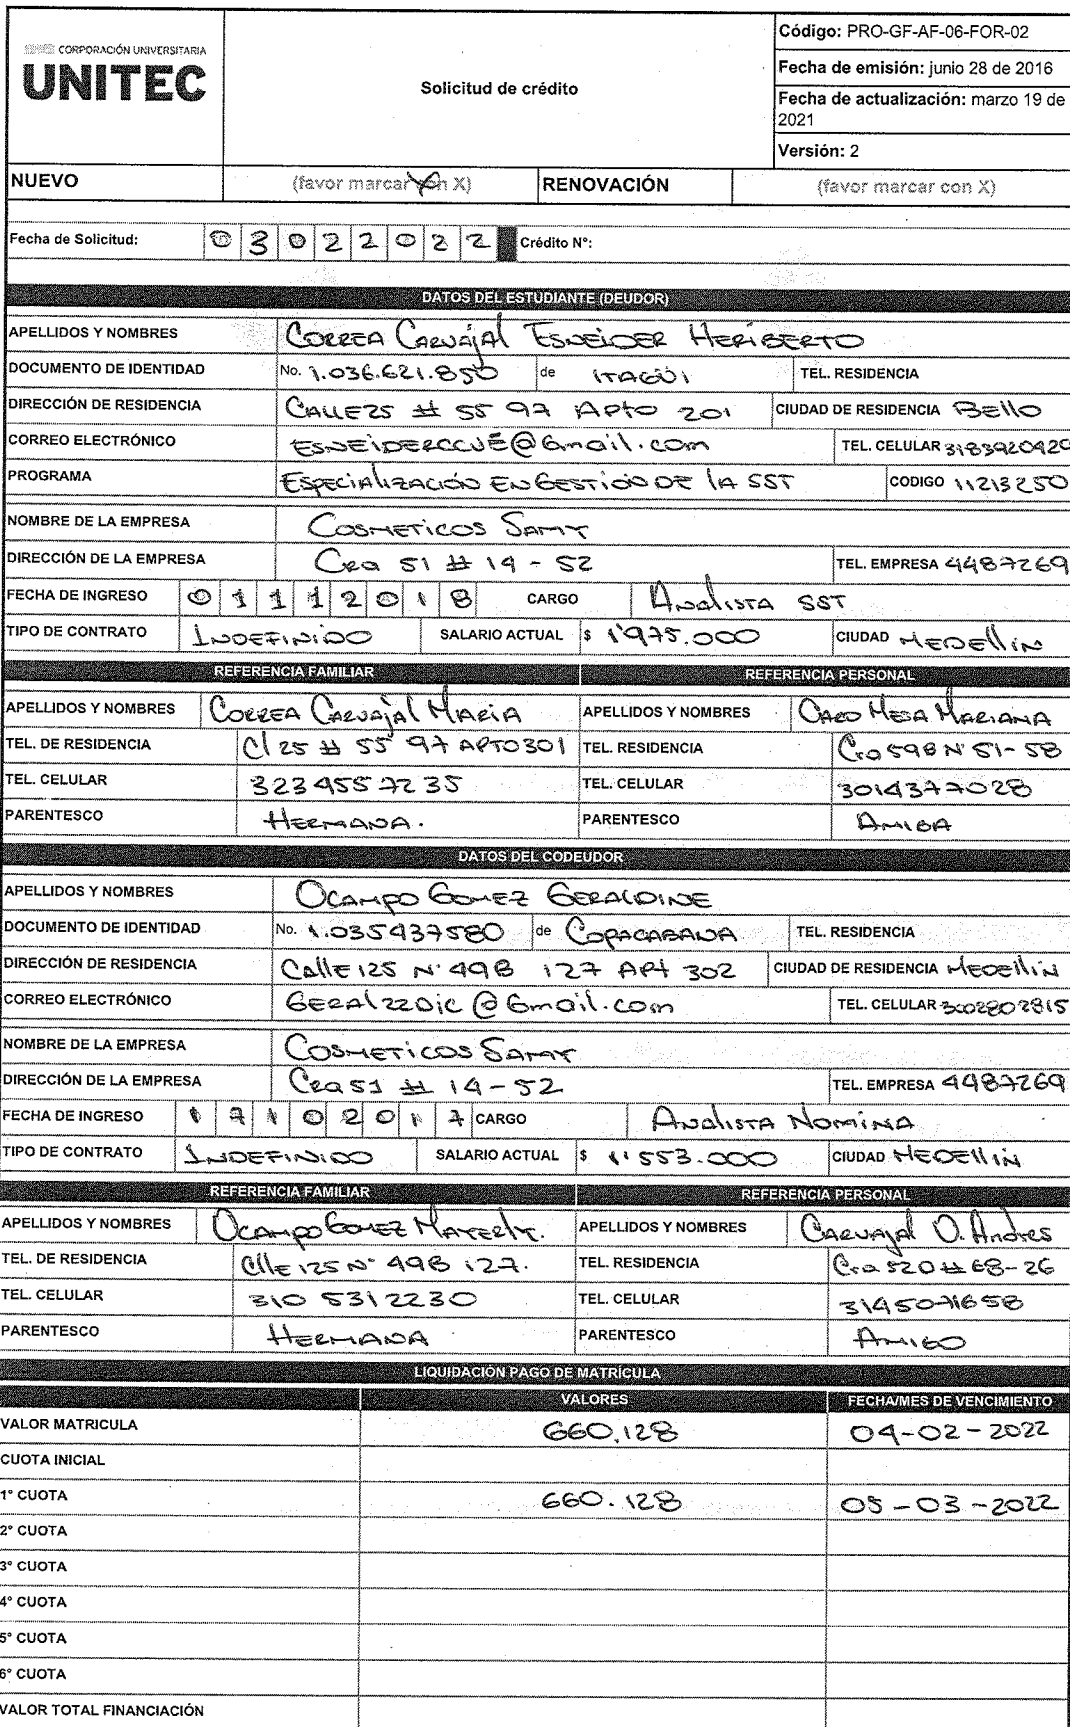 CORPORACIÓN UNIVERSITARIA
UNITEC
Solicitud de crédito
Código: PRO-GF-AF-06-FOR-02
Fecha de emisión: junio 28 de 2016
Fecha de actualización: marzo 19 de 2021
Versión: 2
NUEVO (favor marcar con X) X RENOVACIÓN (favor marcar con X)
Fecha de Solicitud: 03022022 Crédito N°:
DATOS DEL ESTUDIANTE (DEUDOR)
APELLIDOS Y NOMBRES Correa Carvajal Esneider Heriberto
DOCUMENTO DE IDENTIDAD No. 1.036.621.850 de ITAGÜI TEL. RESIDENCIA
DIRECCIÓN DE RESIDENCIA Calle 25 # 55 97 Apto 201 CIUDAD DE RESIDENCIA Bello
CORREO ELECTRÓNICO @Gmail.com TEL. CELULAR 3183920420
PROGRAMA Especialización en Gestión de la SST CODIGO 11213250
NOMBRE DE LA EMPRESA Cosmeticos Samy
DIRECCIÓN DE LA EMPRESA Cra 51 # 14 - 52 TEL. EMPRESA 4487269
FECHA DE INGRESO 01112018 CARGO Analista SST
TIPO DE CONTRATO Indefinido SALARIO ACTUAL $ 1'975.000 CIUDAD Medellin
REFERENCIA FAMILIAR REFERENCIA PERSONAL
APELLIDOS Y NOMBRES Correa Carvajal Maria APELLIDOS Y NOMBRES Caro Mesa Mariana
TEL. DE RESIDENCIA Cl 25 # 55 97 APTO 301 TEL. RESIDENCIA Cra 59B N° 51-58
TEL. CELULAR 323 4557235 TEL. CELULAR 3014377028
PARENTESCO Hermana. PARENTESCO Amiga
DATOS DEL CODEUDOR
APELLIDOS Y NOMBRES Ocampo Gomez Geraldine
DOCUMENTO DE IDENTIDAD No. 1.035437580 de Copacabana TEL. RESIDENCIA
DIRECCIÓN DE RESIDENCIA Calle 125 N° 49B 127 Apt 302 CIUDAD DE RESIDENCIA Medellin
CORREO ELECTRÓNICO Geral22Dic@Gmail.com TEL. CELULAR 3002802815
NOMBRE DE LA EMPRESA Cosmeticos Samy
DIRECCIÓN DE LA EMPRESA Cra 51 # 14-52 TEL. EMPRESA 4487269
FECHA DE INGRESO 17102017 CARGO Analista Nomina
TIPO DE CONTRATO Indefinido SALARIO ACTUAL $ 1'553.000 CIUDAD Medellin
REFERENCIA FAMILIAR REFERENCIA PERSONAL
APELLIDOS Y NOMBRES Ocampo Gomez Mayerly. APELLIDOS Y NOMBRES Carvajal O. Andres
TEL. DE RESIDENCIA Clle 125 N° 49B 127. TEL. RESIDENCIA Cra 52D # 68-26
TEL. CELULAR 310 5312230 TEL. CELULAR 3145071658
PARENTESCO Hermana PARENTESCO Amigo
LIQUIDACIÓN PAGO DE MATRÍCULA
VALORES FECHA/MES DE VENCIMIENTO
VALOR MATRICULA 660.128 04-02-2022
CUOTA INICIAL
1° CUOTA 660.128 05-03-2022
2° CUOTA
3° CUOTA
4° CUOTA
5° CUOTA
6° CUOTA
VALOR TOTAL FINANCIACIÓN